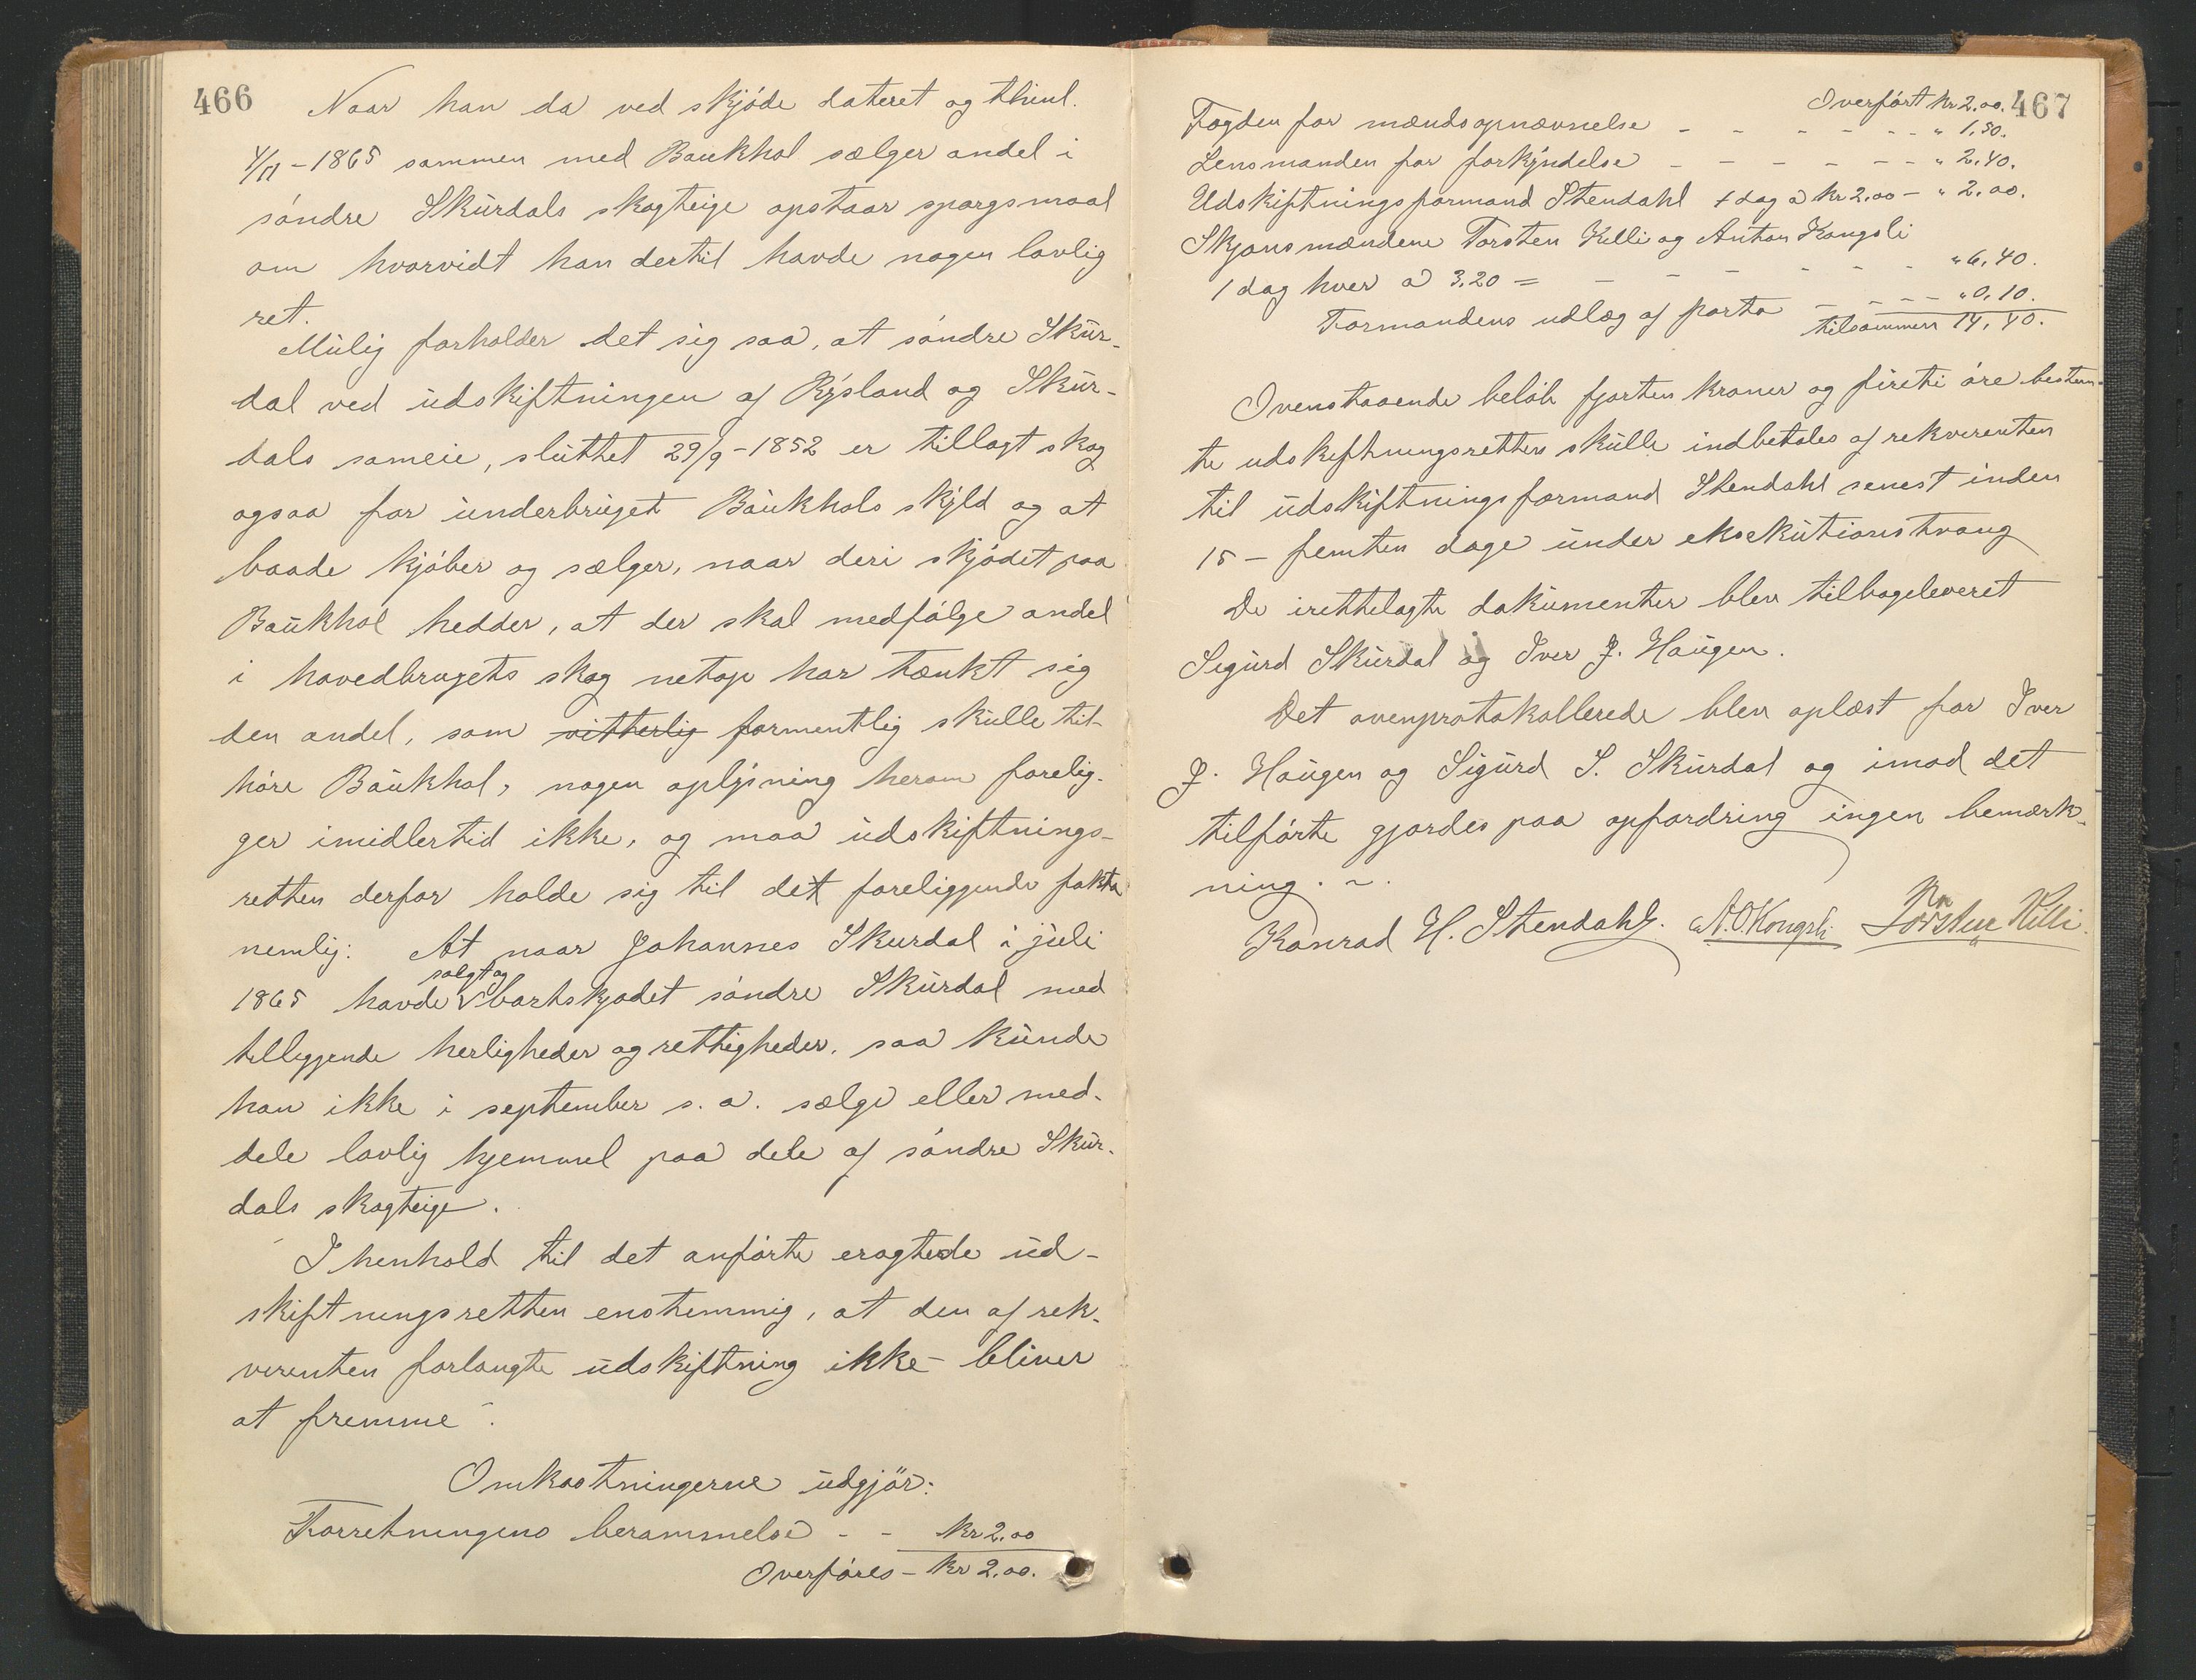 466
Naar han da ved skjøde dateret og thinl.
4/11 - 1865 sammen med Baukhol sælger andel i
søndre Skurdals skogteige opstaar spørgsmaal
om hvorvidt han dertil havde nogen lovlig
ret.
Mulig forholder det sig saa, at søndre Skur-
dal ved udskiftningen af Rysland og Skur-
dals sameie, sluttet 29/9 - 1852 er tillagt skog
ogsaa for underbruget Baukhols skyld og at
baade kjøber og sælger, naar deri skjødet paa
Baukhol hedder, at der skal medfølge andel
i hovedbrugets skog netop har tænkt sig
den andel, som vitterlig formentlig skulle til-
høre Baukhol, nogen oplysning herom forelig-
ger imidlertid ikke, og maa udskiftnings-
retten derfor holde sig til det foreliggende fakta
nemlig: At naar Johannes Skurdal i juli
1865 havde solgt og bortskjødet søndre Skurdal med
tilliggende herligheder og rettigheder, saa kunde
han ikke i september s. a. sælge eller med-
dele lovlig hjemmel paa dele af søndre Skur-
dals skogteige.
I henhold til det anførte eragtede ud-
skiftningsretten enstemmig, at den af rek-
virenten forlangte udskiftning ikke bliver
at fremme.
Omkostningerne udgjør:
Forretningens berammelse - - kr 2.00
Overføres - kr 2.00.
467
Overført kr 2.00.
Fogden for mændsopnævnelse - - - - - - " 1.50.
Lensmanden for forkyndelse - - - - - - " 2.40.
Udskiftningsformand Stendahl 1 dag a kr 2.00 - " 2.00.
Skjønsmændene Torsten Killi og Anton Kongsli
1 dag hver a 3.20 = - - - - - - " 6.40.
Formandens udlæg af porto - - - - " 0.10.
tilsammen 14.40.
Ovenstaaende beløb fjorten kroner og fireti øre bestem-
te udskiftningsretten skulle indbetales af rekvirenten
til udskiftningsformand Stendahl senest inden
15 - femten dage under eksekutionstvang
De irettelagte dokumenter blev tilbageleveret
Sigurd Skurdal og Iver J. Haugen.
Det ovenprotokollerede blev oplæst for Iver
J. Haugen og Sigurd S. Skurdal og imod det
tilførte gjordes paa opfordring ingen bemærk-
ning. ~.
Konrad H. Stendahl. A. O. Kongsli Torsten Killi.